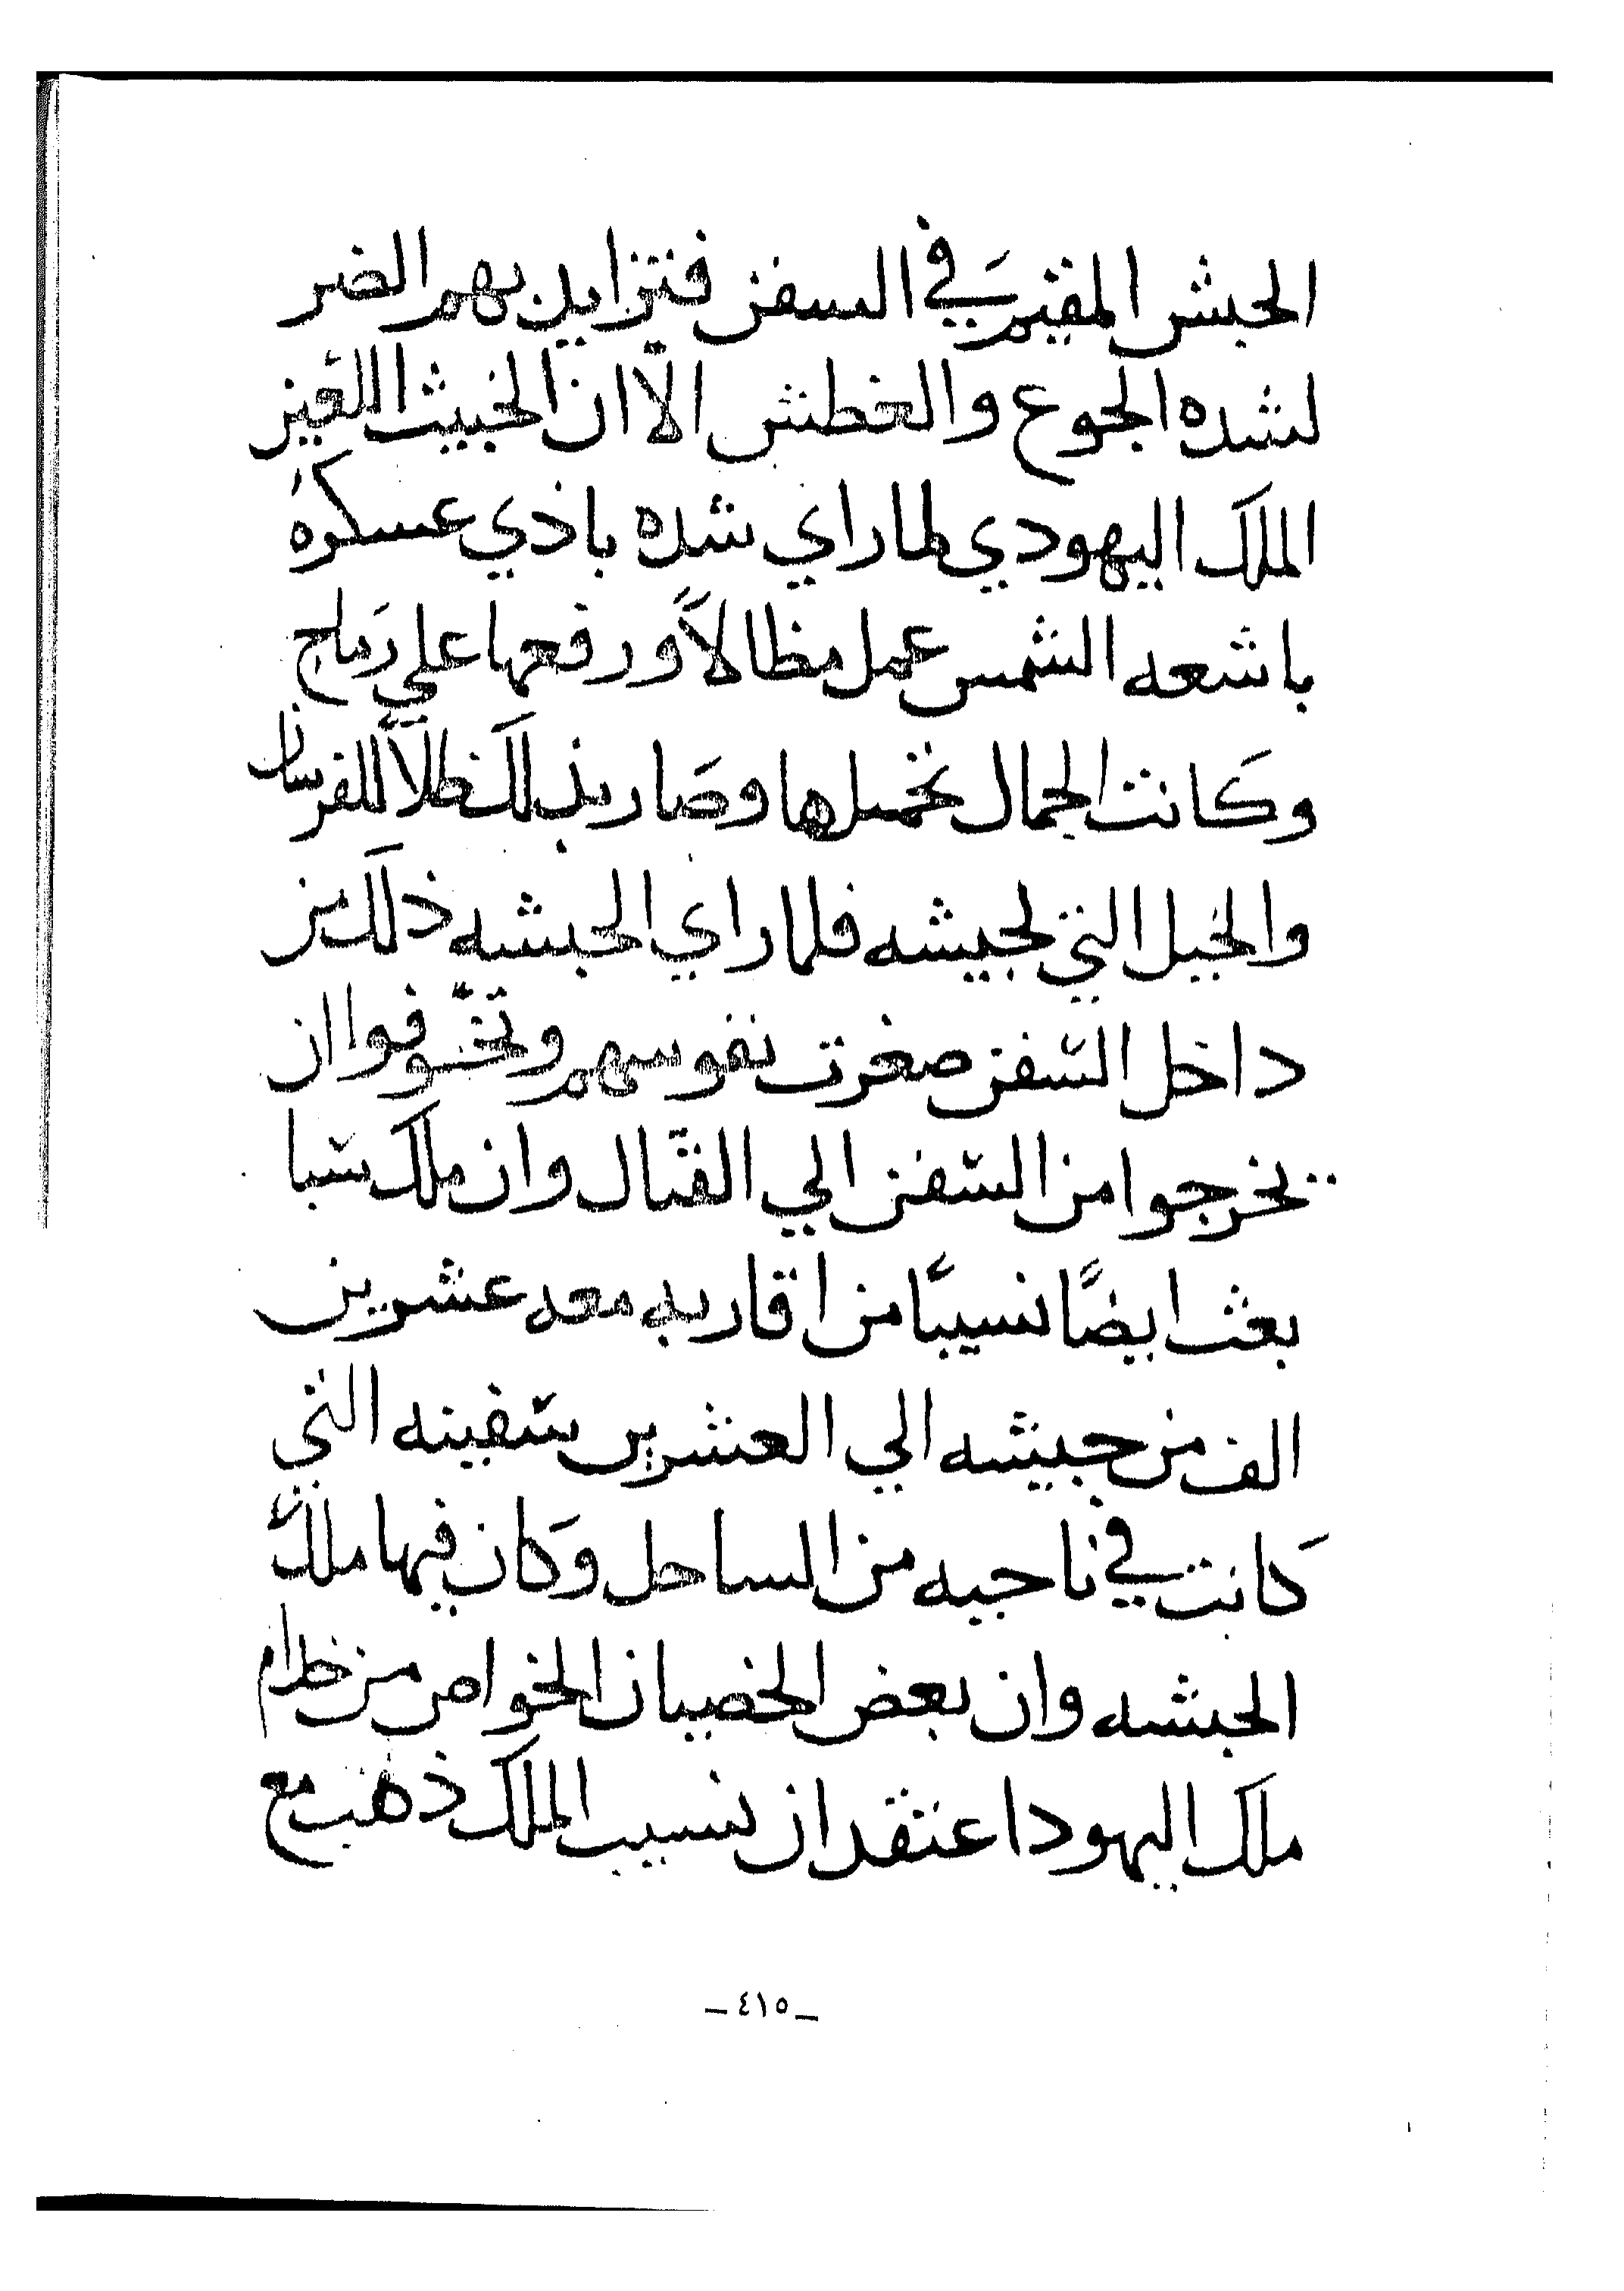 الحبش المقيم في السفن فتزايد بهم الضر
لشده الجوع والعطش الّا ان الخبيث اللعين
الملك اليهودي لما راي شده باذي عسكره
باشعه الشمس عمل مظالاً ورفعها علي رماح
وكانت الجمال تحملها وصار بذلك ظلاً للفرسان
والخيل التي لجيشه فلما راي الحبشه ذلك من
داخل السفن صغرت نفوسهم وتخّوفوا ان
يخرجوا من السفن الي القتال وان ملك سبا
بعث ايضًا نسيبًا من اقاربه معه عشرين
الف من جيشه الي العشرين سفينه التي
كانت في ناحيه من الساحل وكان فيها ملك
الحبشه وان بعض الخصيان الخواص من خدام
ملك اليهود اعتقد ان نسيب الملك ذهب مع
ـ ٤١٥ ـ